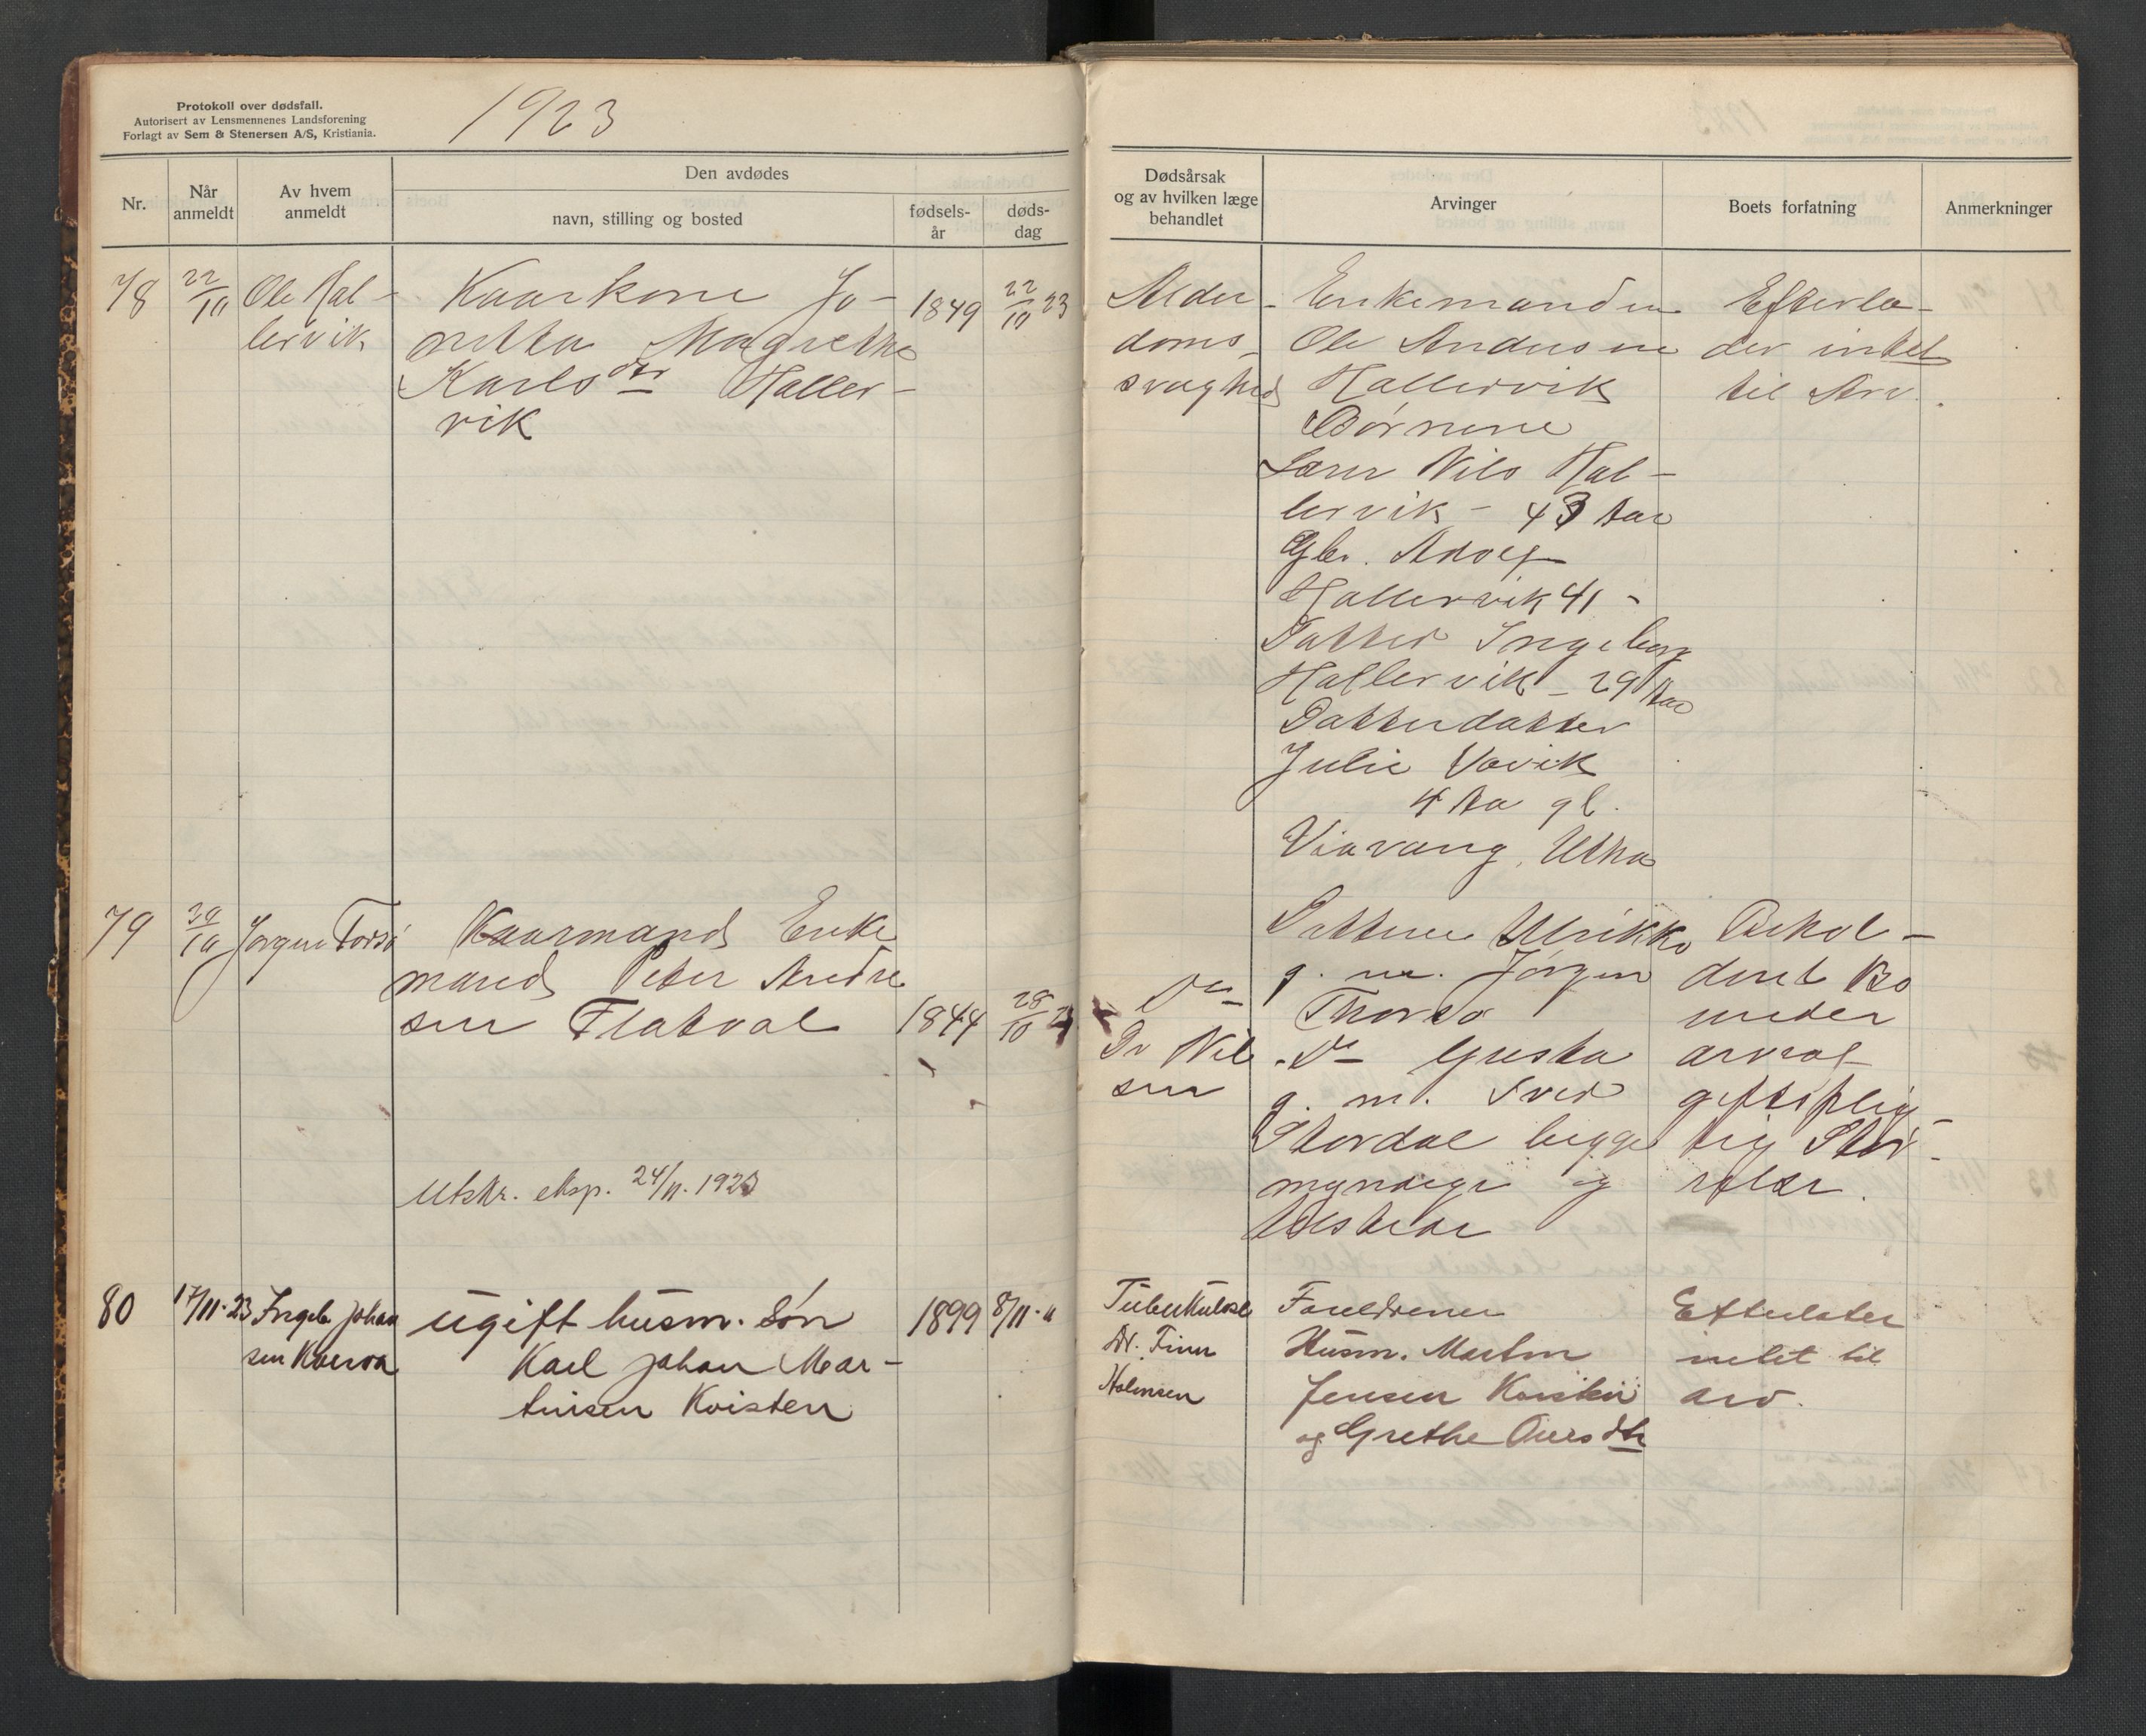 Protokoll over dødsfall.
Autorisert av Lensmennenes Landsforening
Forlagt av Sem & Stenersen A/S, Kristiania.
1923
Nr.
Når
anmeldt
Av hvem
anmeldt
Den avdødes
navn, stilling og bosted
fødsels-
år
døds-
dag
Dødsårsak
og av hvilken læge
behandlet
Arvinger
Boets forfatning
Anmerkninger
78
22/10
Ole Hal-
lervik
Kaarkone Jo-
netta Magrethe
Karlsdtr Haller-
vik
1849
22/10 23
Alder-
doms-
svaghed
Enkemanden
Ole Andersen
Hallervik
Børnene
Lærer Nils Hal-
lervik - 43 Aar
Gbr. Adolf
Hallervik 41 -
Datter Ingeborg
Hallervik - 29 Aar
Datterdatter
Julie Vavik
4 Aa gl.
Utha
Efterla-
der intet
til Arv.
79
10
Jørgen Torsø
Kaarmand Enke
mand Peter Andre
sen Flatval
1844
28/10 23
Do
Dr Nil
sen
Datteren Ulrikke
g. m. Jørgen
Thorsø
Do Gusta
g. m. Iver
Stordal begge
myndige og
Behol-
dent Bo
under
arveaf-
giftsplig-
tig Stør-
relse.
Utskr. eksp. 24/11. 1923
80
17/11-23
Ingeb. Johan
sen Kverva
ugift husm. søn
Karl Johan Mar-
tinsen Kvisten
1899
8/11 - "
Tuberkulose
Dr. Finn
Holmsen
Foreldrene
Husm. Martin
Jensen Kvisten
og Grethe dtr
Efterlater
intet til
arv.